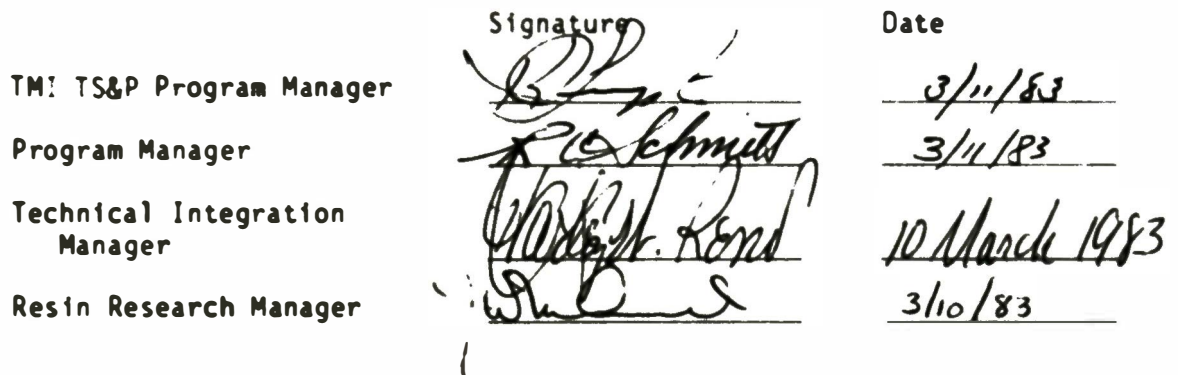 Signature Date
TMI TS&P Program Manager 3/11/83
Program Manager R Schmitt 3/11/83
Technical Integration
Manager 10 March 1983
Resin Research Manager 3/10/83